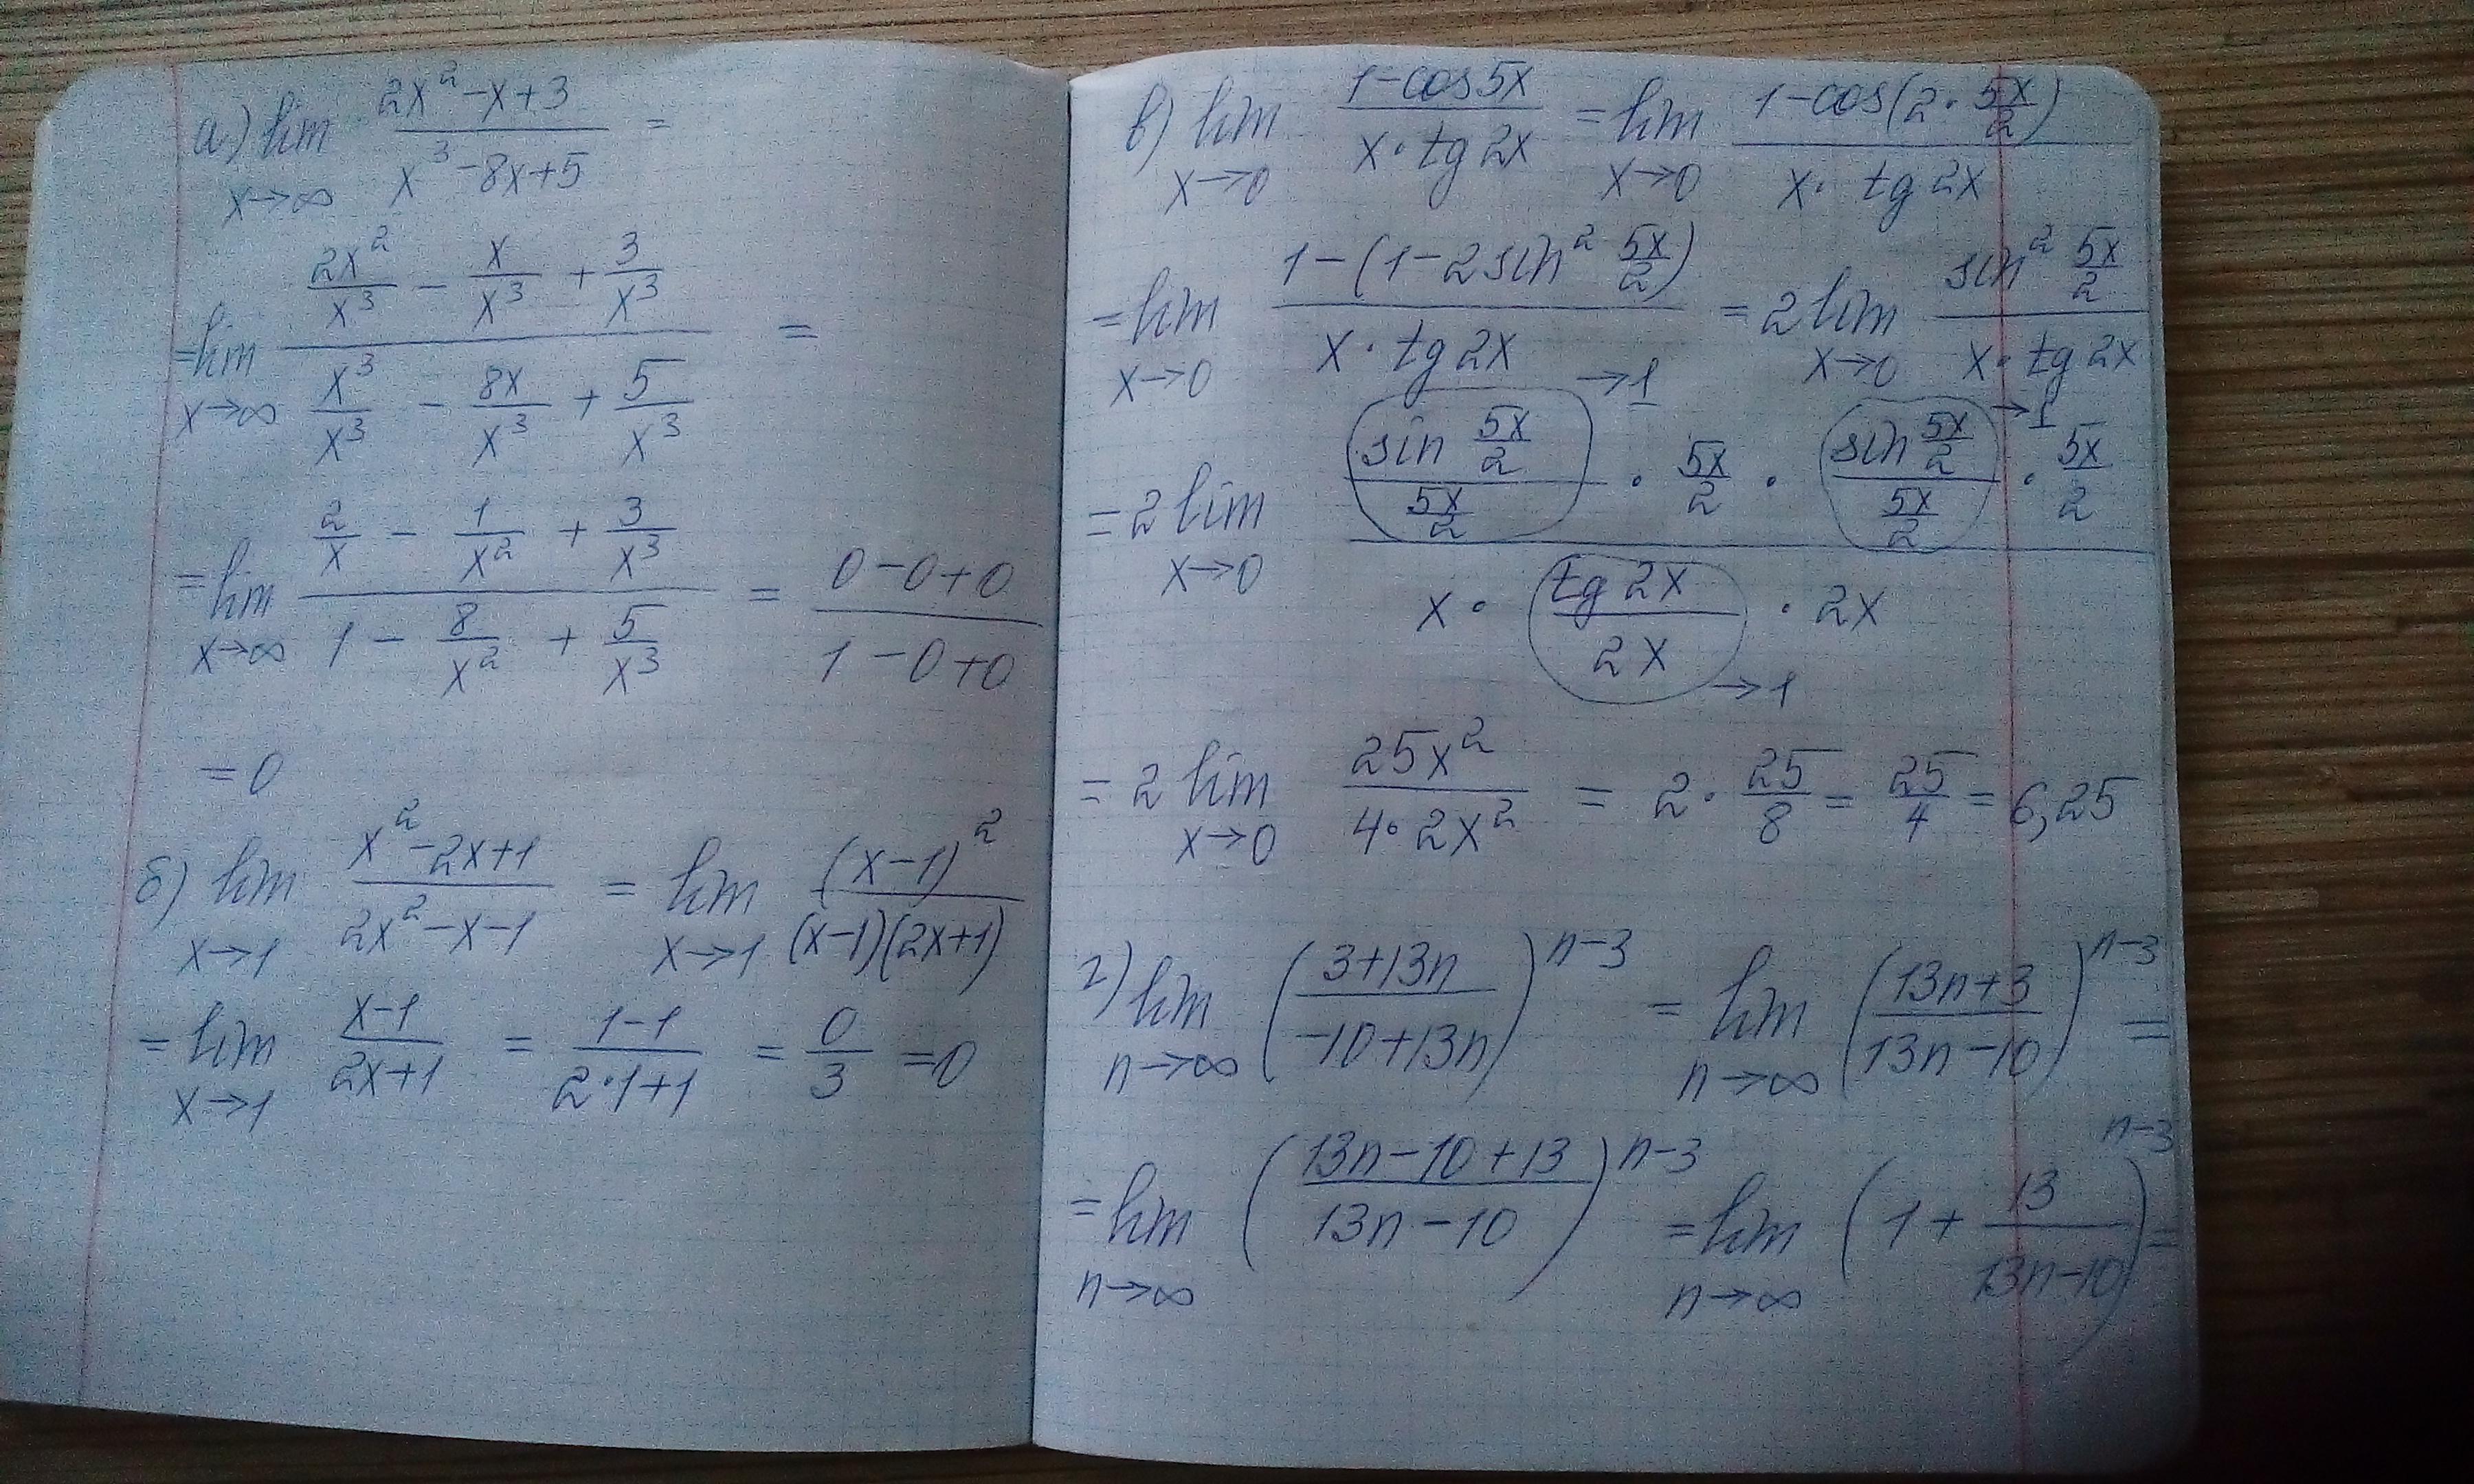 а) lim x→∞ (2x² - x + 3)/(x³ - 8x + 5) =
= lim x→∞ (2x²/x³ - x/x³ + 3/x³)/(x³/x³ - 8x/x³ + 5/x³) =
= lim x→∞ (2/x - 1/x² + 3/x³)/(1 - 8/x² + 5/x³) = (0 - 0 + 0)/(1 - 0 + 0)
= 0
б) lim x→1 (x² - 2x + 1)/(2x² - x - 1) = lim x→1 (x-1)²/((x-1)(2x+1))
= lim x→1 (x-1)/(2x+1) = (1-1)/(2·1+1) = 0/3 = 0
в) lim x→0 (1 - cos5x)/(x · tg2x) = lim x→0 (1 - cos(2 · 5x/2))/(x · tg2x)
= lim x→0 (1 - (1 - 2sin² 5x/2))/(x · tg2x) = 2 lim x→0 (sin² 5x/2)/(x · tg2x)
= 2 lim x→0 ((sin 5x/2)/(5x/2) →1 · 5x/2 · (sin 5x/2)/(5x/2) →1 · 5x/2)/(x · (tg2x)/(2x) →1 · 2x)
= 2 lim x→0 25x²/(4·2x²) = 2 · 25/8 = 25/4 = 6,25
г) lim n→∞ ((3+13n)/(-10+13n))^(n-3) = lim n→∞ ((13n+3)/(13n-10))^(n-3) =
= lim n→∞ ((13n-10+13)/(13n-10))^(n-3) = lim n→∞ (1 + 13/(13n-10))^(n-3) =